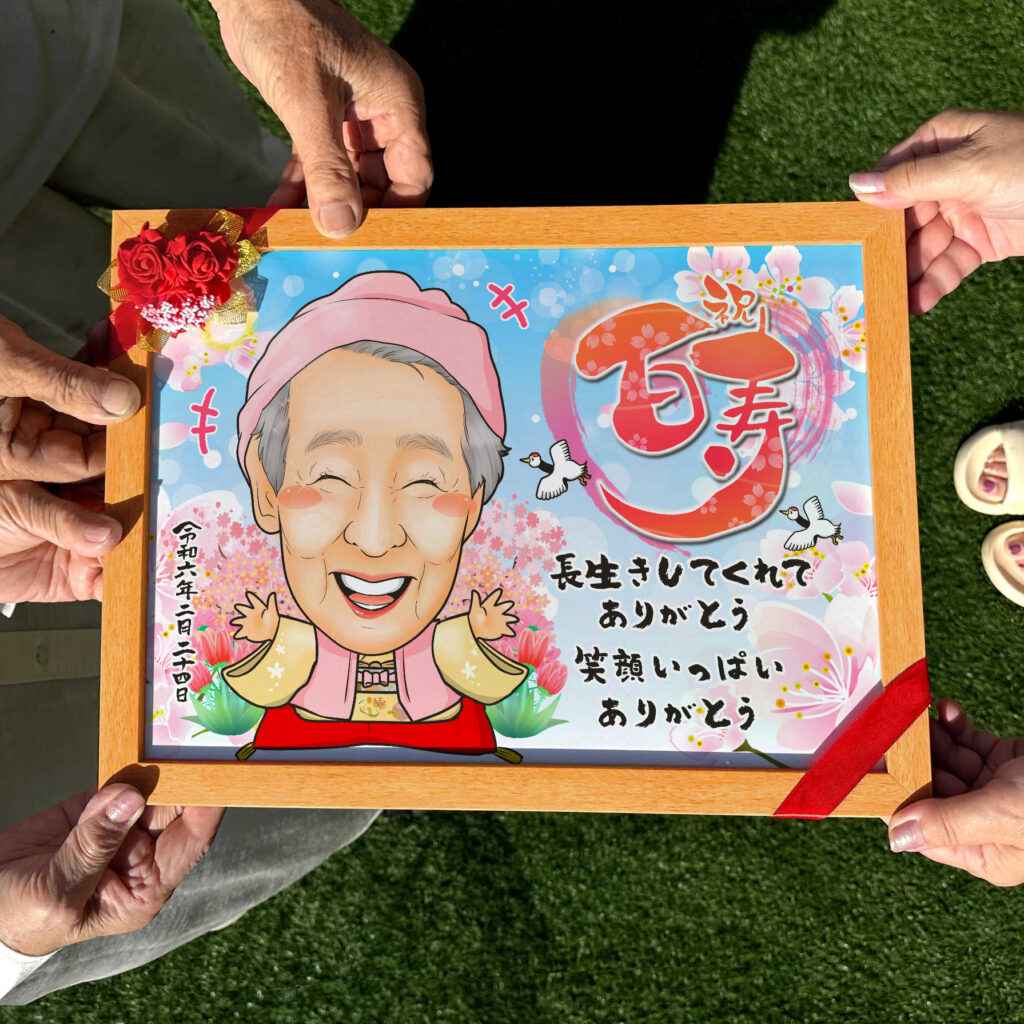 祝
百寿
長生きしてくれて
ありがとう
笑顔いっぱい
ありがとう
令和六年二月二十四日